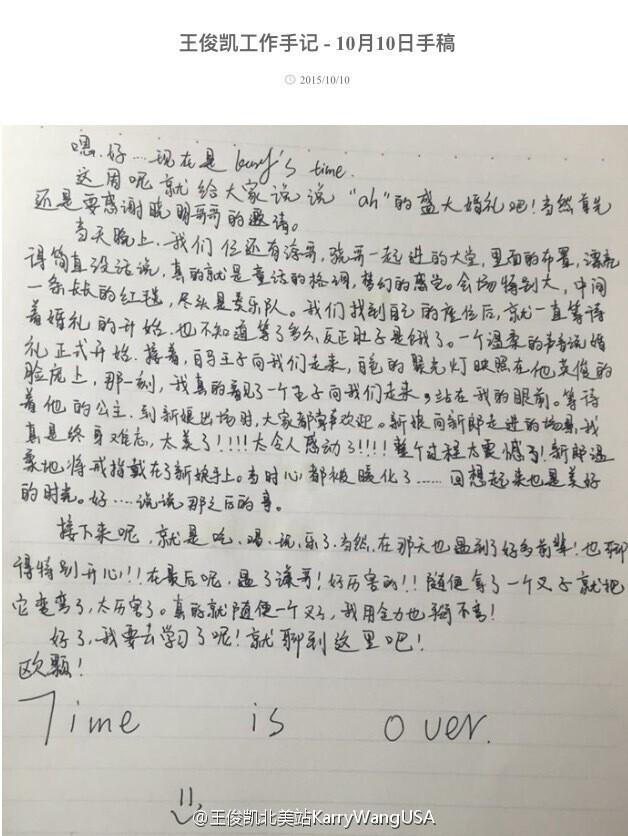 王俊凯工作手记 - 10月10日手稿
2015/10/10
嗯.好……现在是 karry's time.
这周呢就给大家说说“ah”的盛大婚礼吧!当然首先
还是要感谢晓明哥哥的邀请。
当天晚上.我们 还有涛哥,骁哥一起进的大堂,里面的布置,漂亮
得简直没话说,真的就是童话的格调,梦幻的感觉。会场特别大,中间
一条长长的红毯,尽头是交乐队。我们找到自己的座位后,就一直等待
着婚礼的开始.也不知道等了多久,反正肚子是饿了。一个温柔的声音说婚
礼正式开始.接着,白马王子向我们走来,白色的聚光灯映照在他英俊的
脸庞上,那一刻,我真的看见了一个王子向我们走来,站在我的眼前。等待
着他的公主.到新娘出场时,大家都掌声欢迎。新娘向新郎走进的场景,我
真是终身难忘,太美了!!!!太令人感动了!!!!整个过程太震憾了!新郎温
柔地将戒指戴在了新娘手上。当时心都被暖化了……回想起来也是美好
的时光。好……说说那之后的事。
接下来呢,就是吃、喝、玩、乐了.当然,在那天也遇到了好多前辈!也聊
得特别开心!!在最后呢,遇了谦哥!好厉害的!!随便拿了一个叉子就把
它变弯了,太厉害了。真的就随便一个叉子,我用全力也掰不弯!
好了,我要去学习了呢!就聊到这里吧!
欧颗!
Time is over.
@王俊凯北美站KarryWangUSA